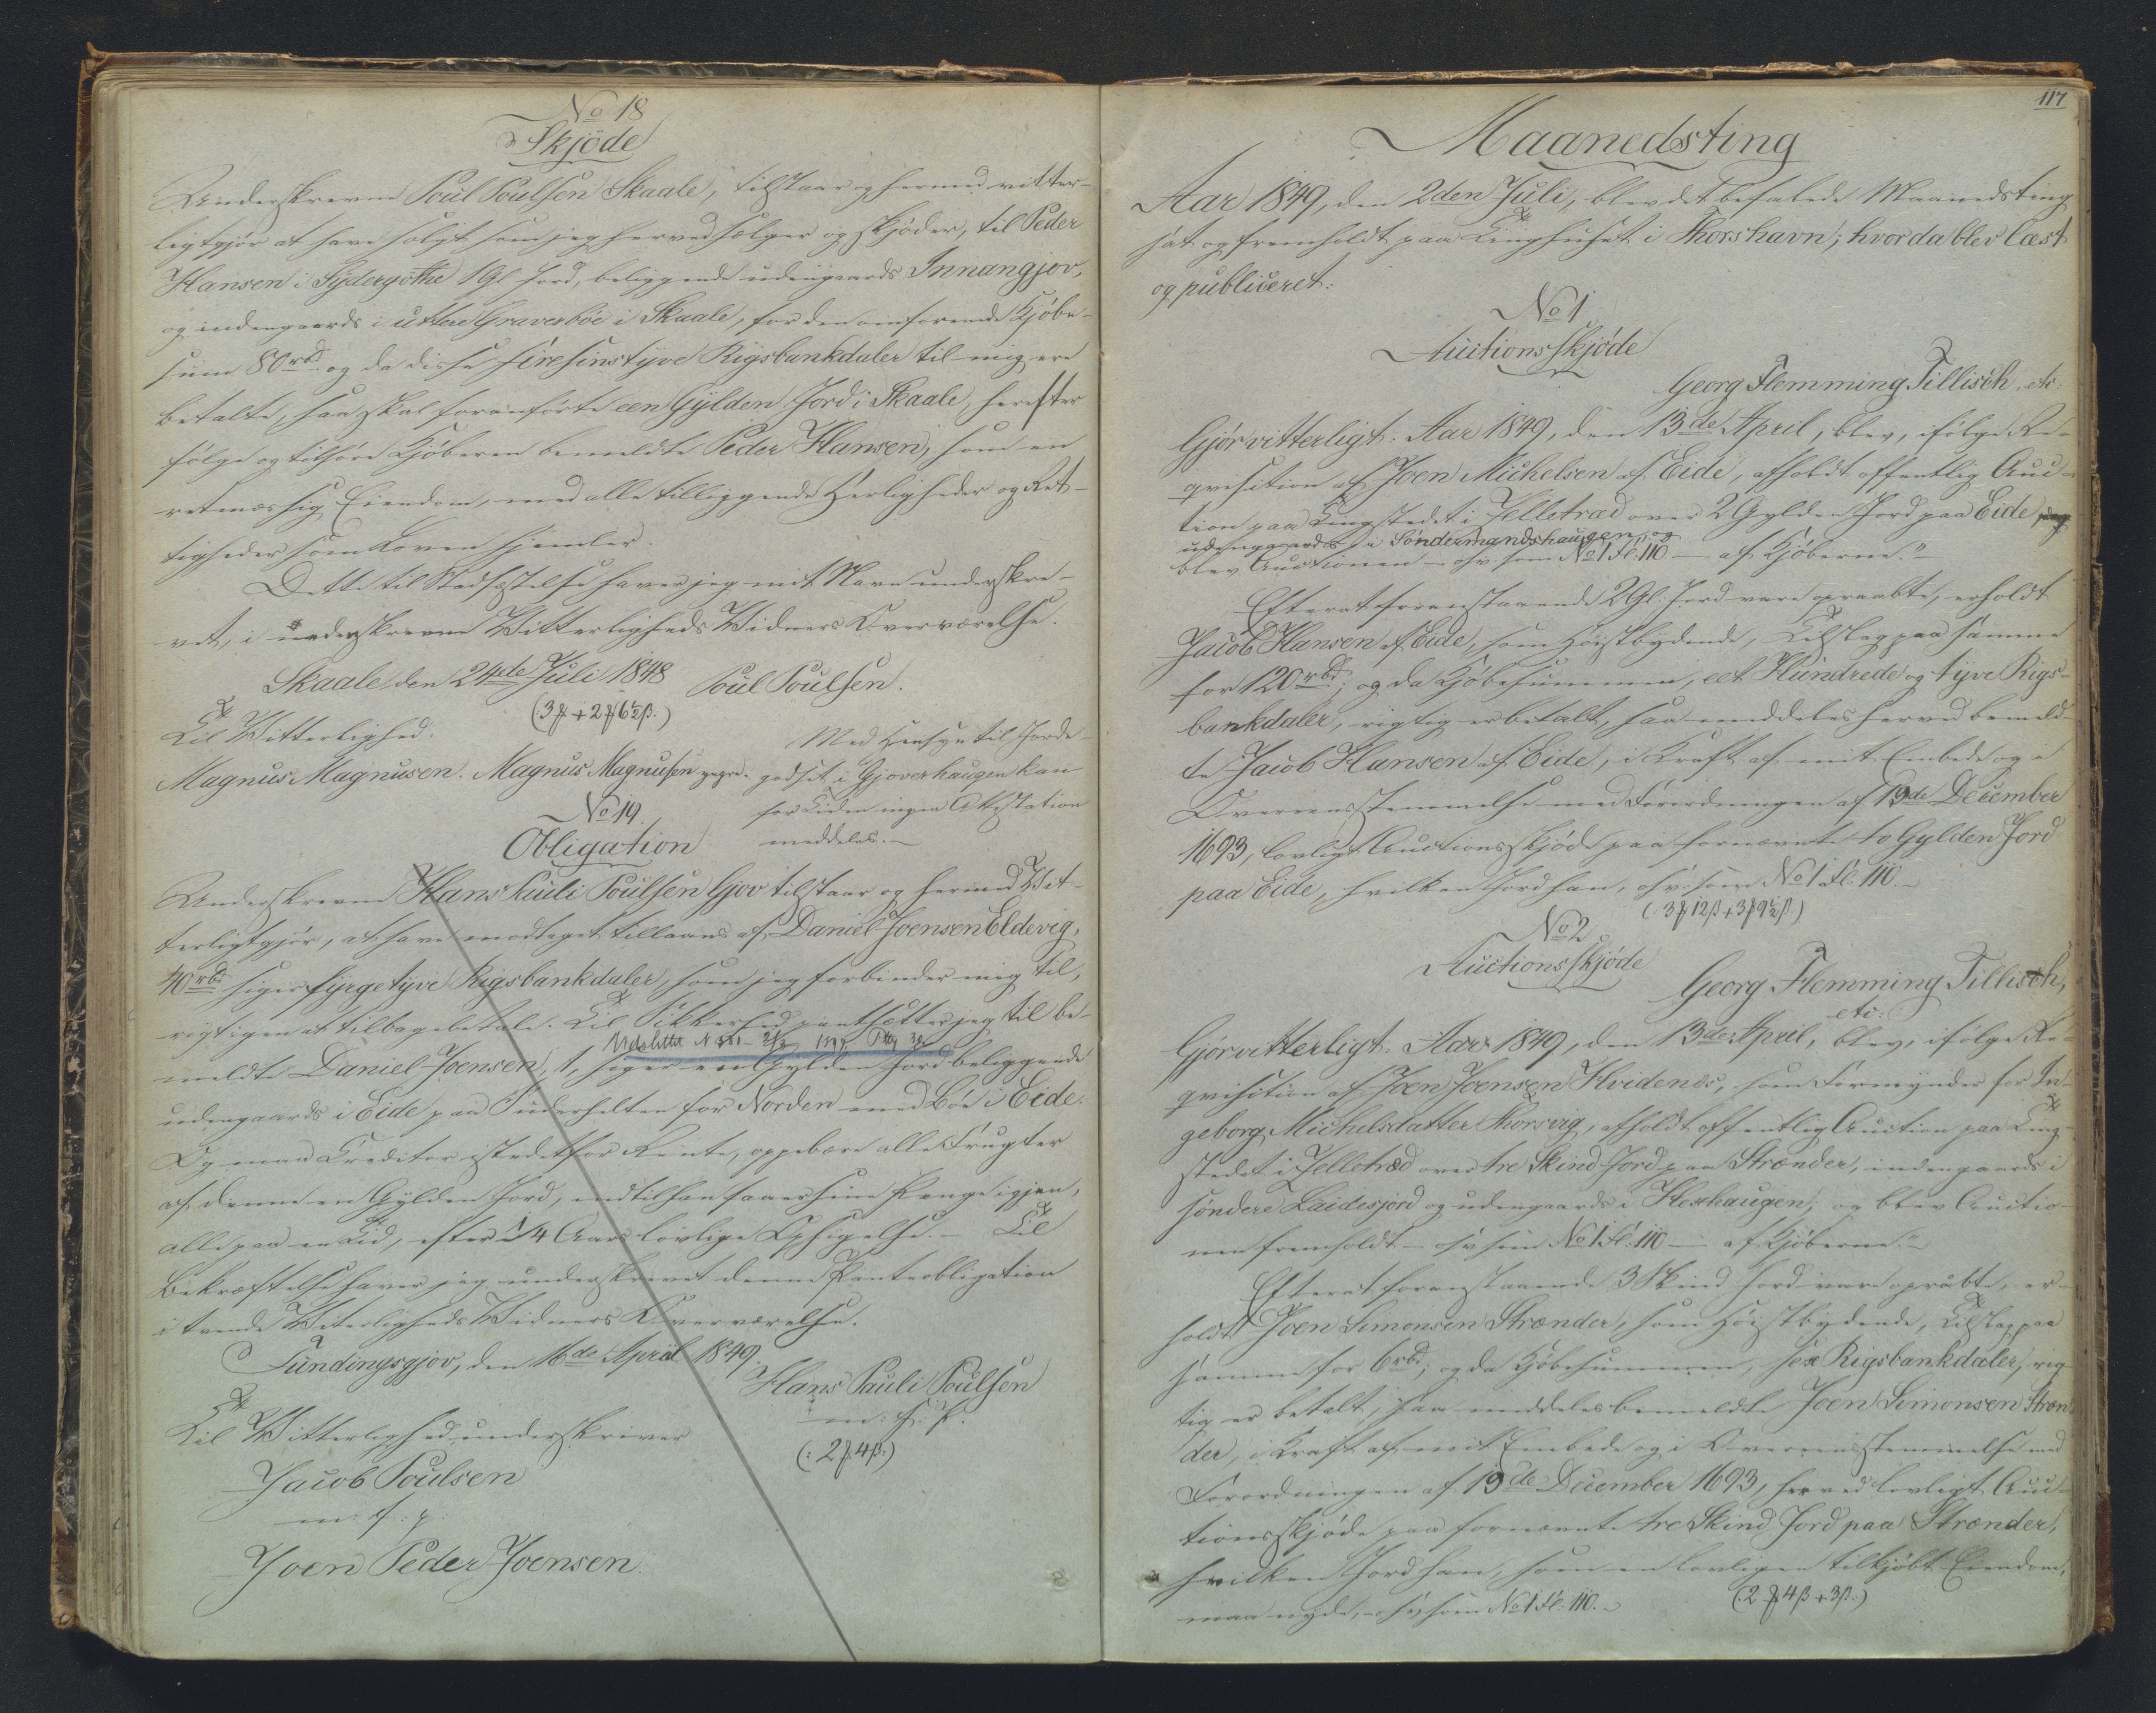 No 18
Skjöde
Underskrevne Poul Poulsen Skaale, tilstaar og hermed vitter-
ligtgjör at have solgt som jeg herved sælger og skjöder, til Peder
Hansen i Sydergöthe 1 Gl. Jord, beliggende udengaards Innangjov,
og indengaards i uttere Graverböe i Skaale, for den omforenede Kjöbe-
sum 80 rbd. og da disse firesinstyve Rigsbankdaler til mig ere
betalte, saa skal foranförte een Gylden Jord i Skaale, herefter
fölge og tilhöre Kjöberen bemeldte Peder Hansen, som en
retmæssig Eiendom, med alle tilliggende Herligheder og Ret-
tigheder som Loven hjemler.
Dette til Stadfæstelse haver jeg mit Navn underskre-
vet, i underskrevne Vitterligheds Vidners Overværelse.
Skaale den 24de Juli 1848 Poul Poulsen.
Til Vitterlighed.
Magnus Magnusen. Magnus Magnusen yngre.
Med Hensyn til Jorde-
godset i Gjoverhaugen kan
for Tiden ingen Attestation
meddeles.
No 19
Obligation
Underskrevne Hans Pauli Poulsen Gjov tilstaar og hermed Vit-
terligtgjör, at have modtaget tillaans af Daniel Joensen Eldevig,
40 rbd. siger fyrgetyve Rigsbankdaler, som jeg forbinder mig til,
rigtigen at tilbagebetale. Til Sikkerhed pantsætter jeg til be-
meldt Daniel Joensen, 1, siger een Gylden Jord beliggende
udengaards i Eide paa Suderhelten for Norden med Böe i Eide.
Og maa Creditor istedetfor Rente, oppebære alle Frugter
af denne en Gylden Jord, indtil han faaer sine Penge igjen,
alle paa en Tid, efter 1/4 Aars lovlige Opsigelse. – Til
Bekræftelse haver jeg underskrevet denne Panteobligation
i tvende Viterligheds Vidners Overværelse.
Fundingsgjov, den 16de April 1849.
Hans Pauli Poulsen
m. f. P.
Til Vitterlighed underskriver
Jacob Poulsen
m. f. p.
Joen Peder Joensen.
117
Maanedsting
Aar 1849, den 2den Juli, blev det befalede Maanedsting
sat og fremholdt paa Tinghuset i Thorshavn; hvor da blev læst
og publiceret:
No 1
Auctionsskjöde
Georg Flemming Tillisch, etc.
Gjör vitterligt: Aar 1849, den 13de April, blev, ifölge Re-
qvisition af Joen Michelsen af Eide, afholdt offentlig Auc-
tion paa Tingstedet i Jelletræd over 2 Gylden Jord paa Eide
udengaards i Söndermandshaugen, og
blev Auctionen – osv. som No 1 Fl. 110 – af Kjöberne."
Efterat foranstaaende 2 Gl. Jord vare opraabte, erholdt
Jacob Hansen af Eide, som höistbydende, Tilslag paa samme
for 120 rbd; og da Kjöbesummen, eet Hundrede og tyve Rigs-
bankdaler, rigtig er betalt, saa meddeles herved bemeld-
te Jacob Hansen af Eide, i Kraft af mit Embede og i
Overeensstemmelse med Forordningen af 19de December
1693, lovligt Auctionsskjöde paa fornævnte to Gylden Jord
paa Eide, hvilken Jord han, osv. som No 1 Fl. 110.
No 2
Auctionsskjöde
Georg Flemming Tillisch,
etc:
Gjör vitterligt: Aar 1849, den 13de April, blev, ifölge Re-
qvisition af Joen Joensen Hvidenes, som Formynder for In-
geborg Michelsdatter Thorsvig, afholdt offentlig Auction paa Ting-
stedet i Jelletræd over tre Skind Jord paa Strænder, indengaards i
söndere Laidesjord og udengaards i Heshaugen; og blev Auctio-
nen fremholdt – osv. som No 1 Fl. 110 – af Kjöberne."
Efterat foranstaaende 3 Skind Jord vare opraabte, er-
holdt Joen Simonsen Strænder, som höistbydende, Tilslag paa
samme for 6 rbd; og da Kjöbesummen, sex Rigsbankdaler, rig-
tig er betalt, saa meddeles bemeldte Joen Simonsen Stræn-
der, i Kraft af mit Embede og i Overeensstemmelse med
Forordningen af 19de December 1693, herved lovligt Auc-
tionsskjöde paa fornævnte tre Skind Jord paa Strænder,
hvilken Jord han, som en lovligen tilkjöbt Eiendom,
maa nyde, – osv. som No 1 Fl. 110.